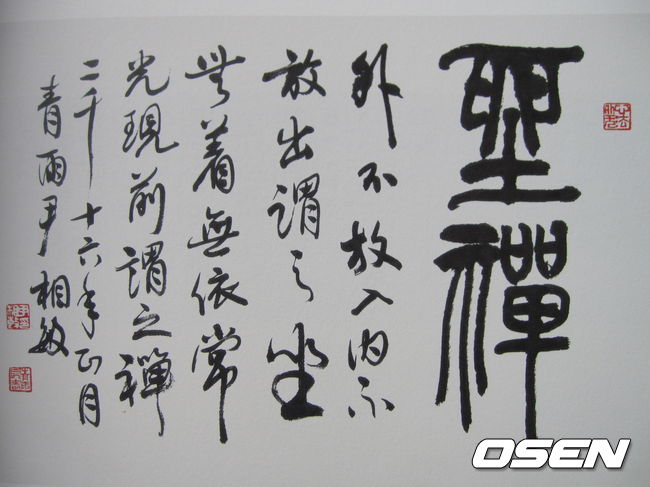 坐禪
外不放入内不
放出謂之坐
無着無依常
光現前謂之禪
二千十六年正月
青雨尹相敏
OSEN